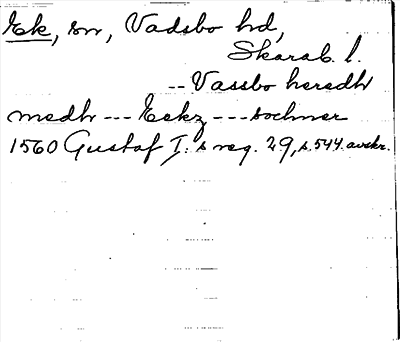 Ek, sn, Vadsbo hd,
Skarab. l.
-- Vassbo heredh
medh --- Eekz --- sochner
1560 Gustaf I:s reg. 29, s. 544. avskr.